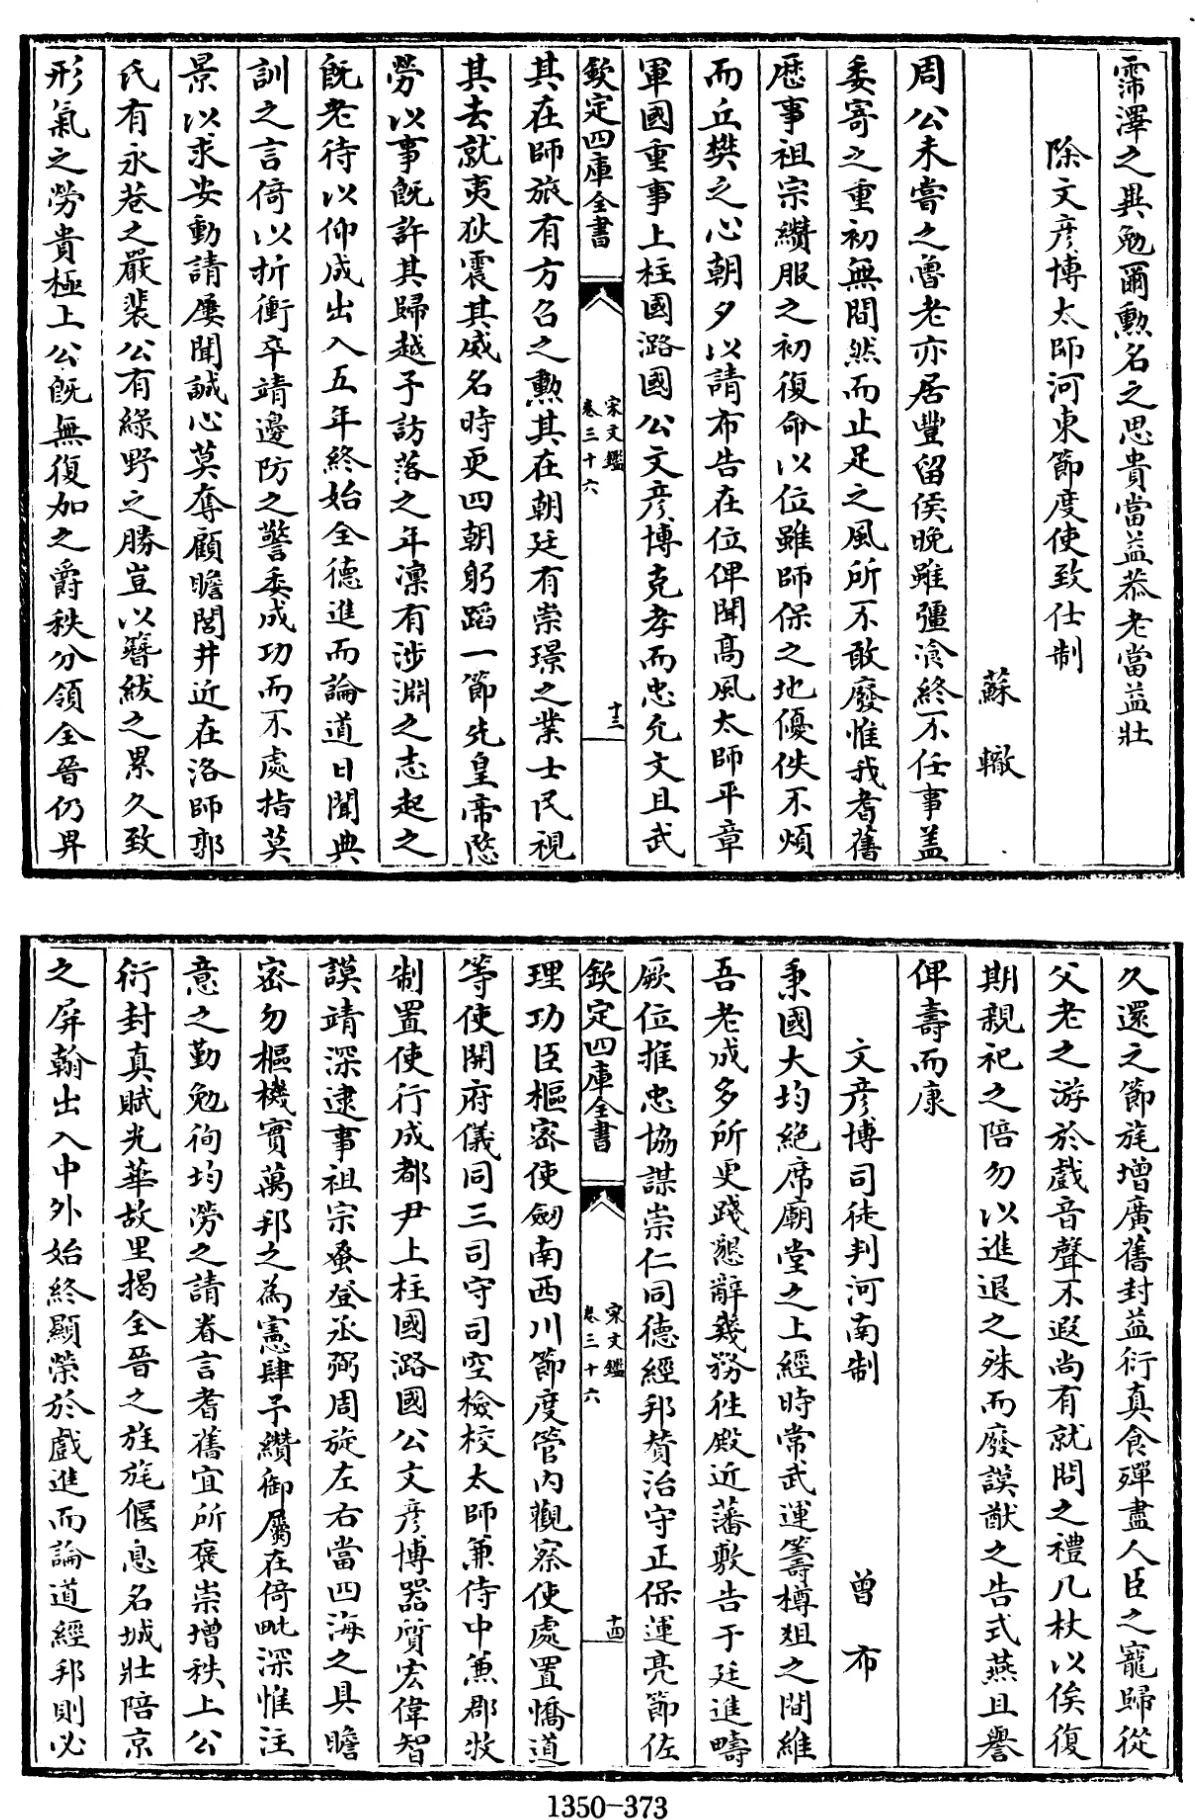 霈澤之異勉爾勲名之思貴當益恭老當益壯
除文彦博太師河東節度使致仕制
蘇轍
周公未嘗之魯老亦居豐留侯晚雖彊飡終不任事盖
委寄之重初無間然而止足之風所不敢廢惟我耆舊
歴事祖宗纘服之初復命以位雖師保之地優佚不煩
而丘樊之心朝夕以請布告在位俾聞髙風太師平章
軍國重事上柱國潞國公文彦博克孝而忠允文且武
欽定四庫全書
宋文鑑
卷三十六
十三
其在師旅有方召之勲其在朝廷有崇璟之業士民視
其去就夷狄震其威名時更四朝躬蹈一節先皇帝愍
勞以事既許其歸越予訪落之年凛有涉淵之志起之
既老待以仰成出入五年終始全德進而論道日聞典
訓之言倚以折衝卒靖邊防之警委成功而不處指莫
景以求安動請屢聞誠心莫奪顧瞻閭井近在洛師郭
氏有永巷之嚴裴公有緑野之勝豈以簪紱之累久致
形氣之勞貴極上公既無復加之爵秩分領全晉仍畀
久還之節旄増廣舊封益衍真食殫盡人臣之寵歸從
父老之游於戲音聲不遐尚有就問之禮几杖以俟復
期親祀之陪勿以進退之殊而廢謨猷之告式燕且譽
俾壽而康
文彦博司徒判河南制
曾布
秉國大均絶席廟堂之上經時常武運籌樽俎之間維
吾老成多所更踐懇辭幾務往殿近藩敷告于廷進疇
厥位推忠協謀崇仁同德經邦賛治守正保運亮節佐
欽定四庫全書
宋文鑑
卷三十六
十四
理功臣樞密使劒南西川節度管内觀察使處置橋道
等使開府儀同三司守司空檢校太師兼侍中兼郡牧
制置使行成都尹上柱國潞國公文彦博器質宏偉智
謨靖深逮事祖宗蚤登丞弼周旋左右當四海之具瞻
宻勿樞機實萬邦之為憲肆予纘御屬在倚毗深惟注
意之勤勉徇均勞之請眷言耆舊宜所褒崇増秩上公
衍封真賦光華故里揭全晉之旌旄偃息名城壯陪京
之屏翰出入中外始終顯榮於戲進而論道經邦則必
1350-373